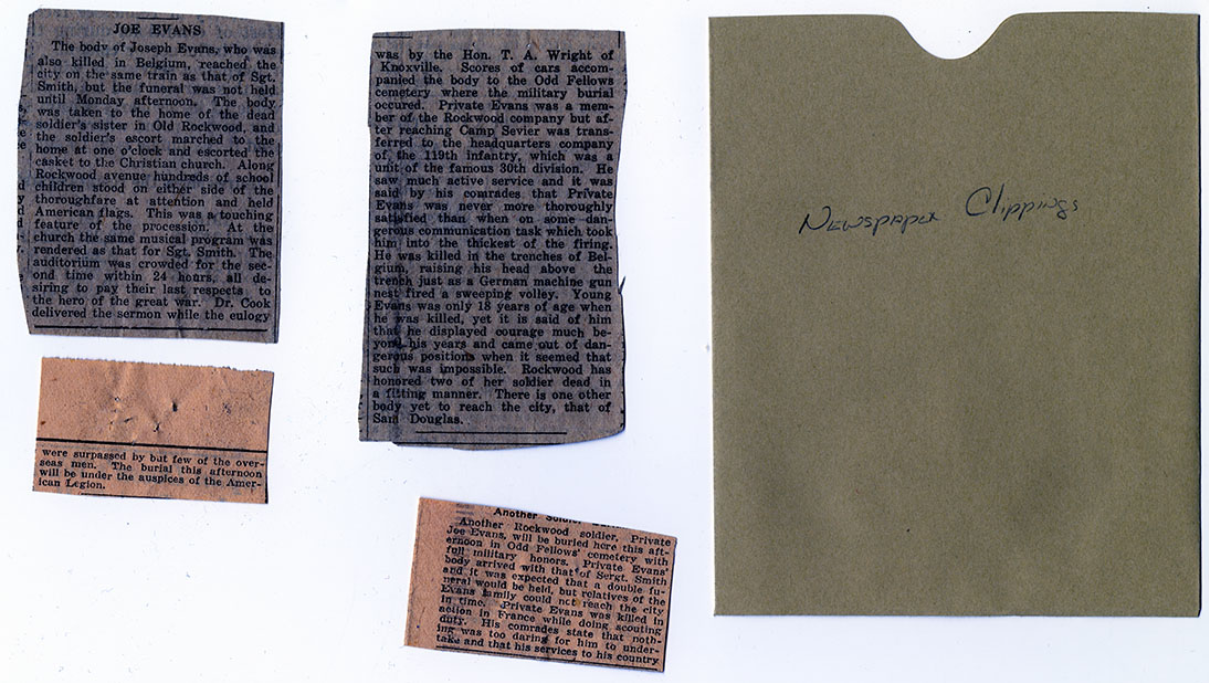 JOE EVANS
The body of Joseph Evans, who was
also killed in Belgium, reached the
city on the same train as that of Sgt.
Smith, but the funeral was not held
until Monday afternoon. The body
was taken to the home of the dead
soldier's sister in Old Rockwood, and
the soldier's escort marched to the
home at one o'clock and escorted the
casket to the Christian church. Along
Rockwood avenue hundreds of school
children stood on either side of the
thoroughfare at attention and held
American flags. This was a touching
feature of the procession. At the
church the same musical program was
rendered as that for Sgt. Smith. The
auditorium was crowded for the sec-
ond time within 24 hours, all de-
siring to pay their last respects to
the hero of the great war. Dr. Cook
delivered the sermon while the eulogy
was by the Hon. T. A. Wright of
Knoxville. Scores of cars accom-
panied the body to the Odd Fellows
cemetery where the military burial
occured. Private Evans was a mem-
ber of the Rockwood company but af-
ter reaching Camp Sevier was trans-
ferred to the headquarters company
of the 119th infantry, which was a
unit of the famous 30th division. He
saw much active service and it was
said by his comrades that Private
Evans was never more thoroughly
satisfied than when on some dan-
gerous communication task which took
him into the thickest of the firing.
He was killed in the trenches of Bel-
gium, raising his head above the
trench just as a German machine gun
nest fired a sweeping volley. Young
Evans was only 18 years of age when
he was killed, yet it is said of him
that he displayed courage much be-
yond his years and came out of dan-
gerous positions when it seemed that
such was impossible. Rockwood has
honored two of her soldier dead in
a fitting manner. There is one other
body yet to reach the city, that of
Sam Douglas.
Another Soldier
Another Rockwood soldier, Private
Joe Evans, will be buried here this aft-
ernoon in Odd Fellows' cemetery with
full military honors. Private Evans'
body arrived with that of Sergt. Smith
and it was expected that a double fu-
neral would be held, but relatives of the
Evans family could not reach the city
in time. Private Evans was killed in
action in France while doing scouting
duty. His comrades state that noth-
ing was too daring for him to under-
take and that his services to his country
were surpassed by but few of the over-
seas men. The burial this afternoon
will be under the auspices of the Amer-
ican Legion.
Newspaper Clippings